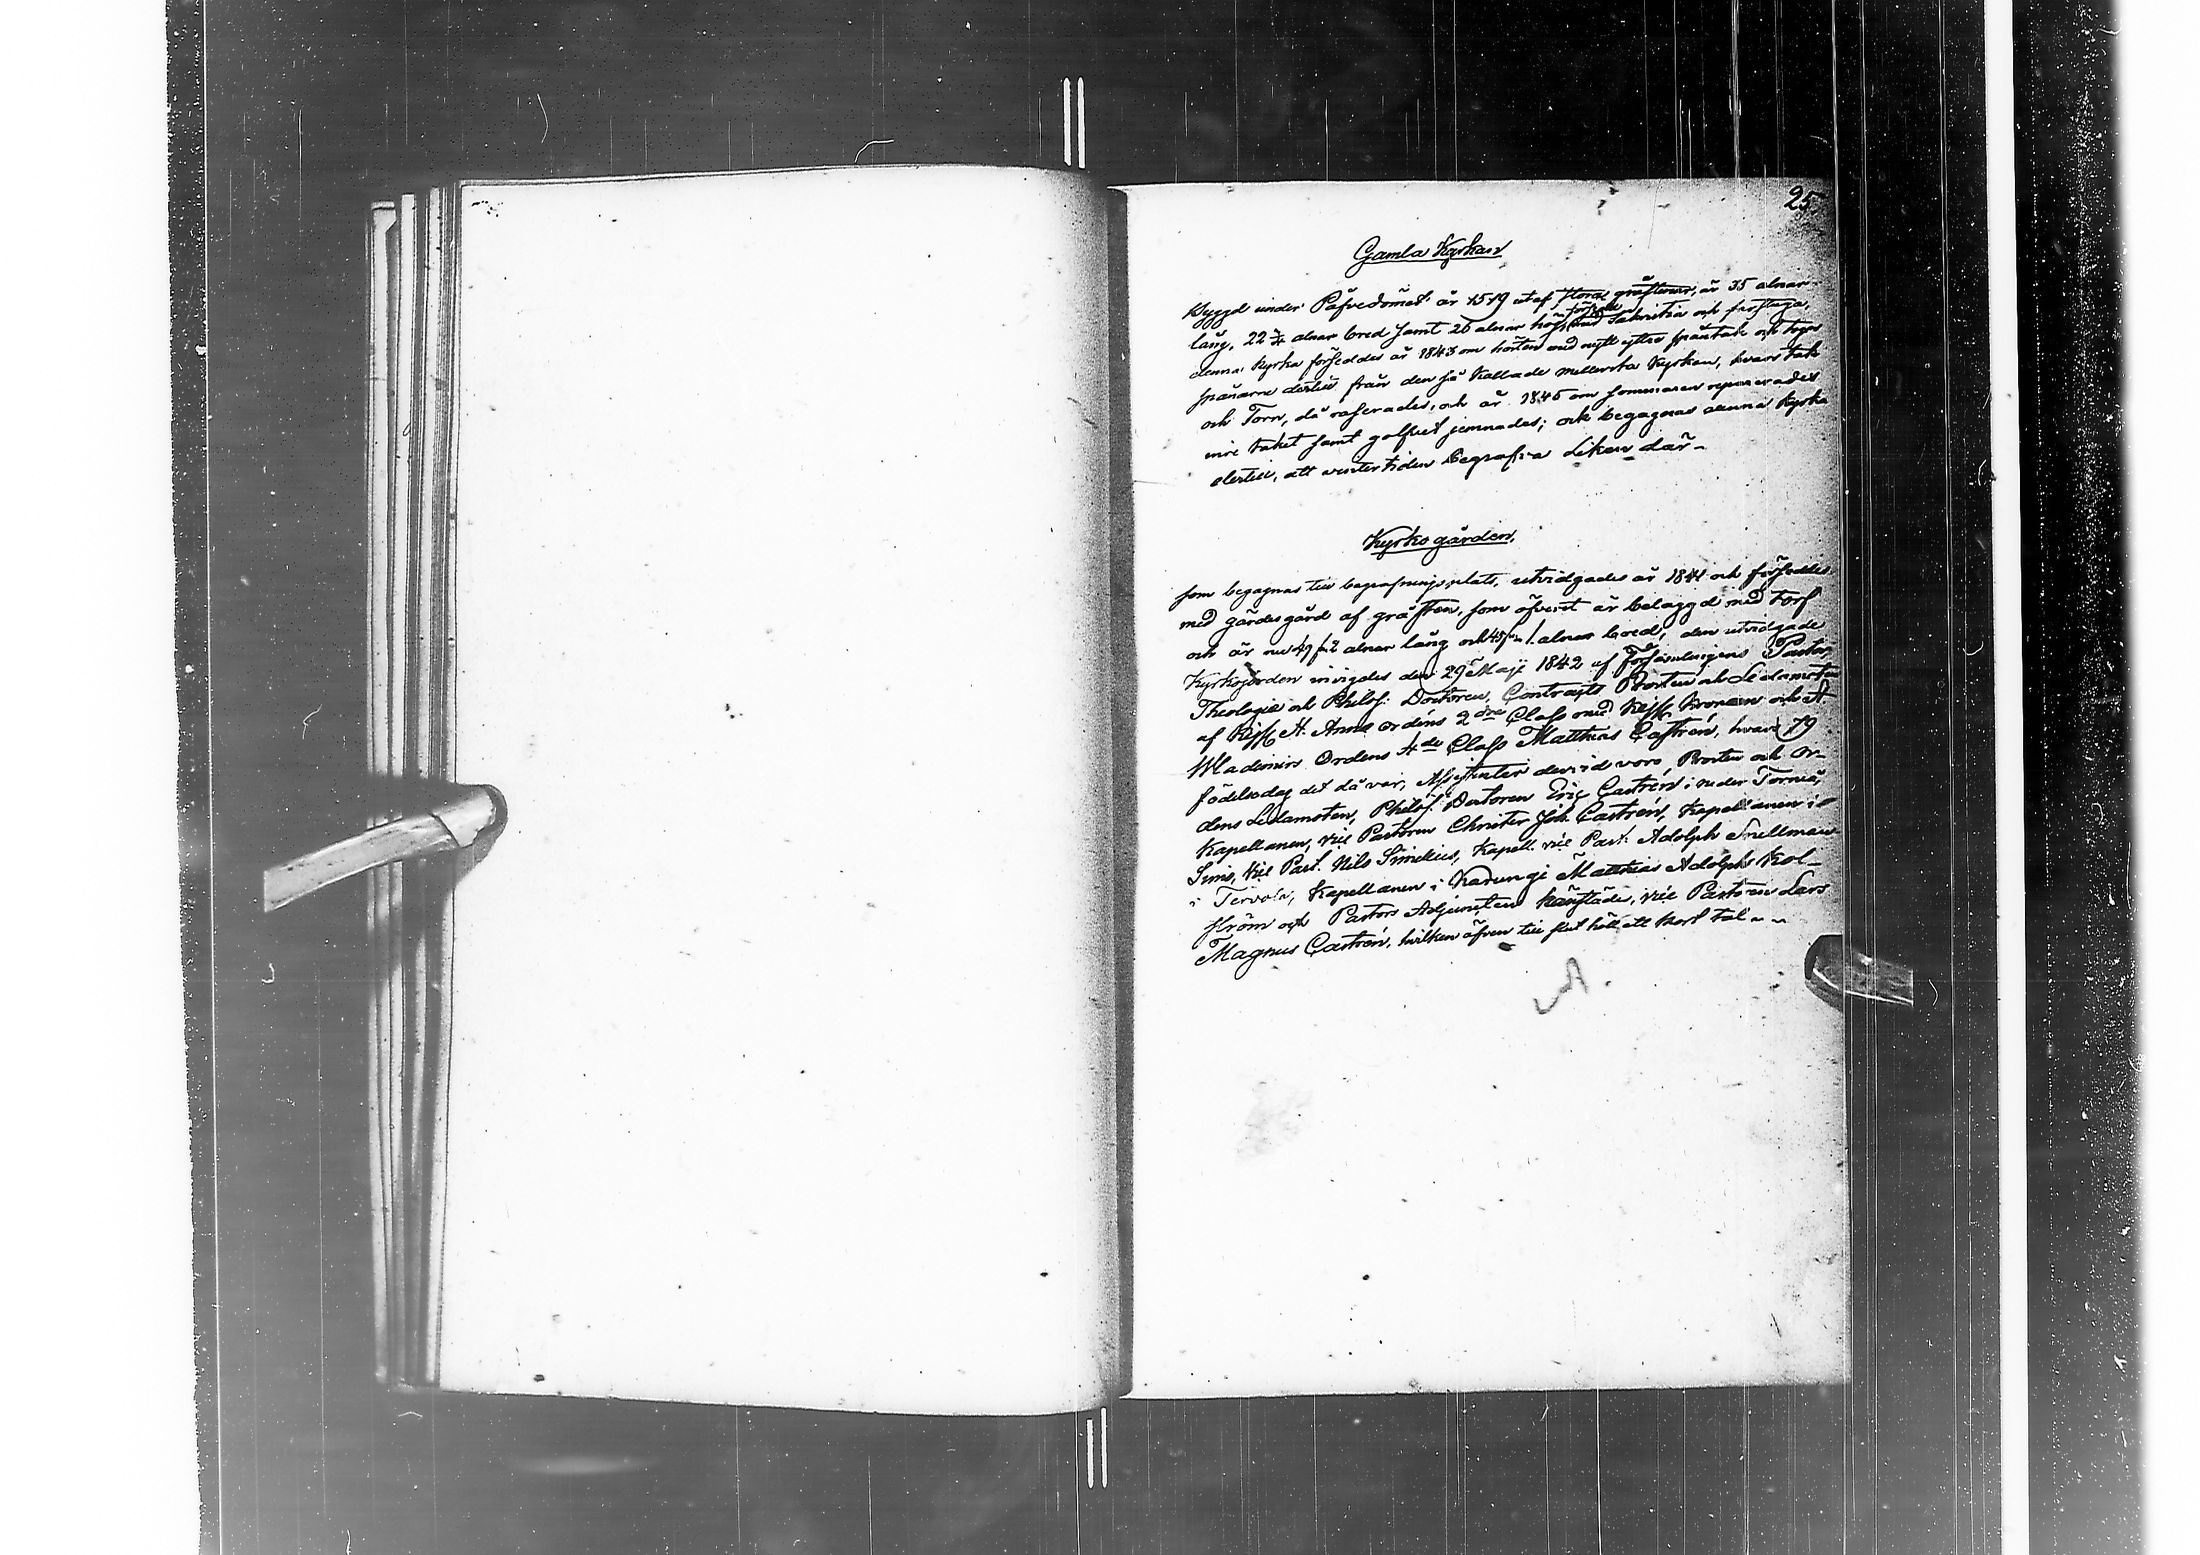 25
Gamla Kyrkan
Byggd under Påfvedömet år 1519 utaf stora gråstenar, är 35 alnar
lång, 22 3/4 alnar bred samt 26 alnar hög, Sakristia och
denna Kyrka förseddes år 1843 om hösten med nytt yttre spåntak och togos
spånarne dertill från den så kallade mellersta Kyrkan, hvars tak
och Torn, då raserades, och år 1845 om sommaren reparerades
inre taket samt golfvet jemnades; och begagnas denna Kyrka
dertill, att vintertiden begrafva Liken där-
Kyrkogården,
som begagnas till begrafningsplats, utvidgades år 1841 och förseddes
med gärdesgård af gråsten, som öfverst är belaggd med torf
och är nu alnar lång och alnar bred, den utvidgade
Kyrkogården invigdes den 29 Maji 1842 af församlingens Pastor,
Theologiæ och Philos: Doctoren, Contracts Prosten och Ledamoten
af Kejs: St. Annæ Ordens 2dra Class med Kejs: Kronan och St.
Wladimirs Ordens 4de Class Matthias Castrén, hvars 79
födelsedag det då var, Assistenter dervid voro, Prosten och Or-
dens Ledamoten, Philos: Doctoren Eric Castrén i neder Torneå,
Kapellanen, vice Pastoren Christer Joh. Castrén, Kapellanen i
Simo, vice Past. Nils Simelius, Kapell. vice Past. Adolph Snellman
i Tervola, Kapellanen i Karungi Matthias Adolph Kol-
ström och Pastors Adjuncten härstädes, vice Pastoren Lars
Magnus Castrén, hvilken äfven till slut höll ett kort tal